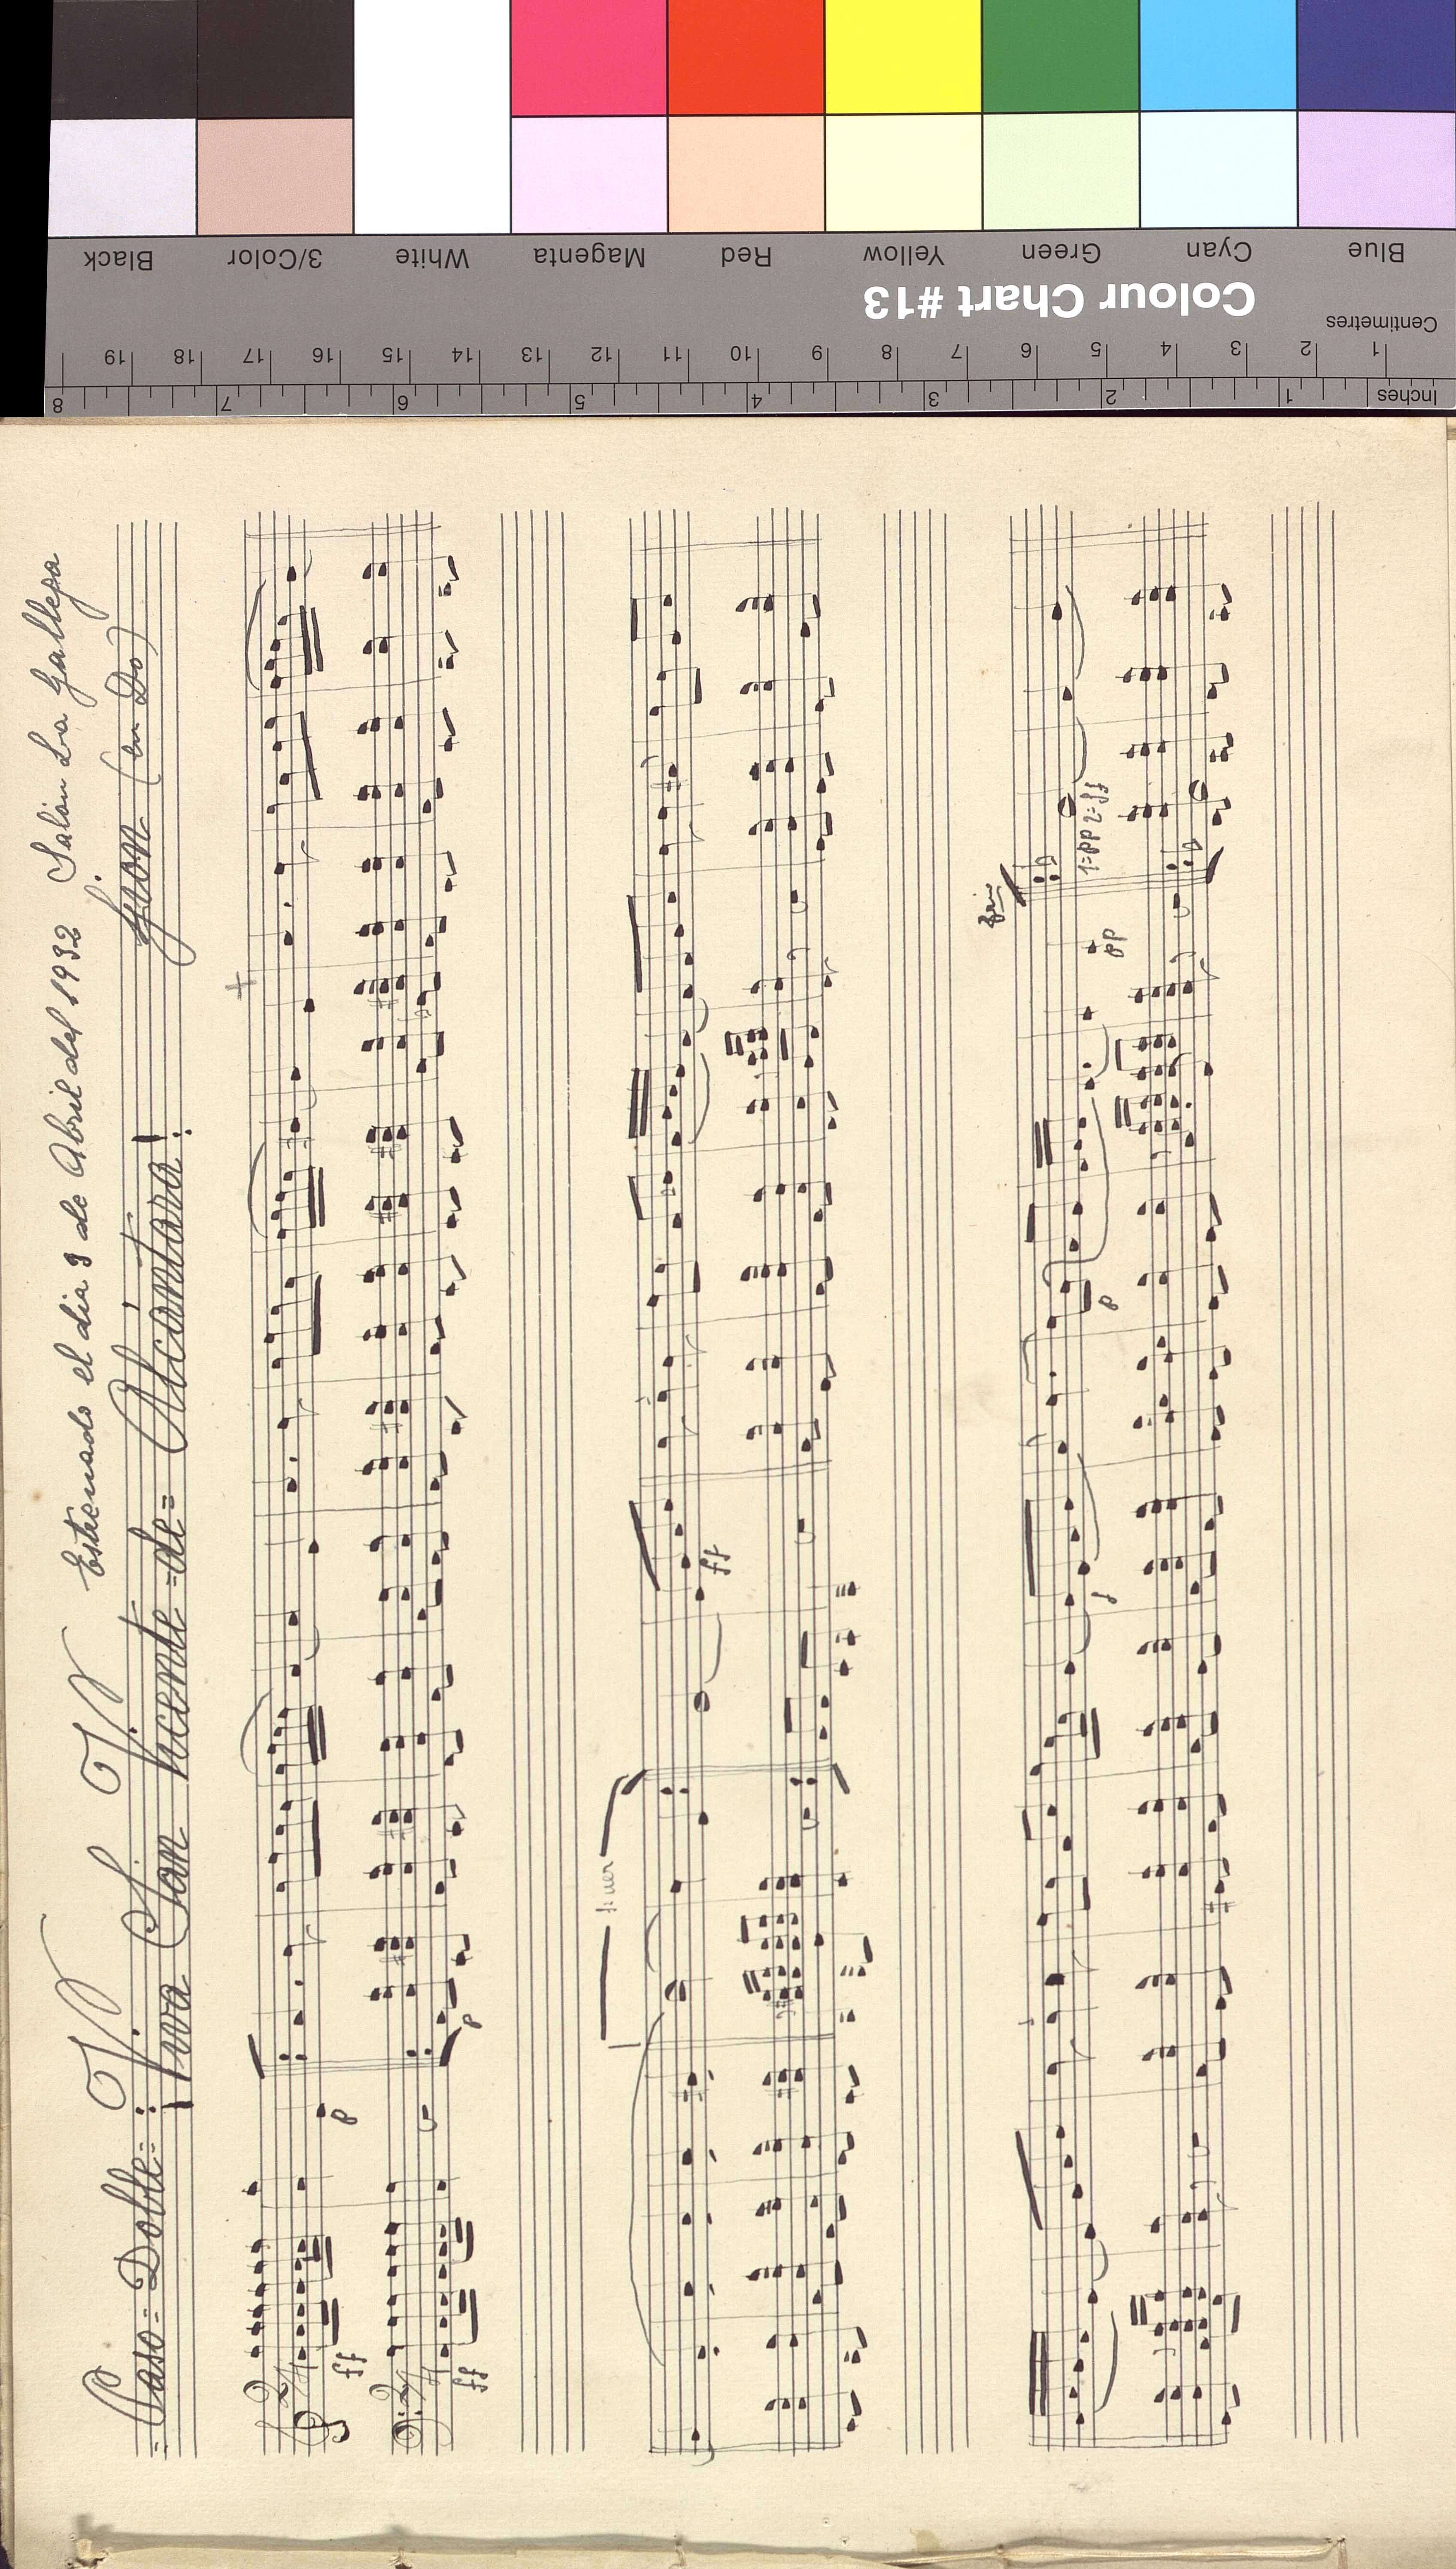 Black 3/Color White Magenta Red Yellow Green Cyan Blue
Colour Chart #13
Centimetres
1 2 3 4 5 6 7 8 9 10 11 12 13 14 15 16 17 18 19
Inches 1 2 3 4 5 6 7 8
Estrenado el dia 3 de Abril del 1932 Salón La Gallega
Paso=Doble= V. V.
¡Viva San Vicente =de= Alcántara!
(en Do)
2/4
ff
2/4
ff
p
p
1ª vez
ff
p
pp
Trio
1=pp 2=ff